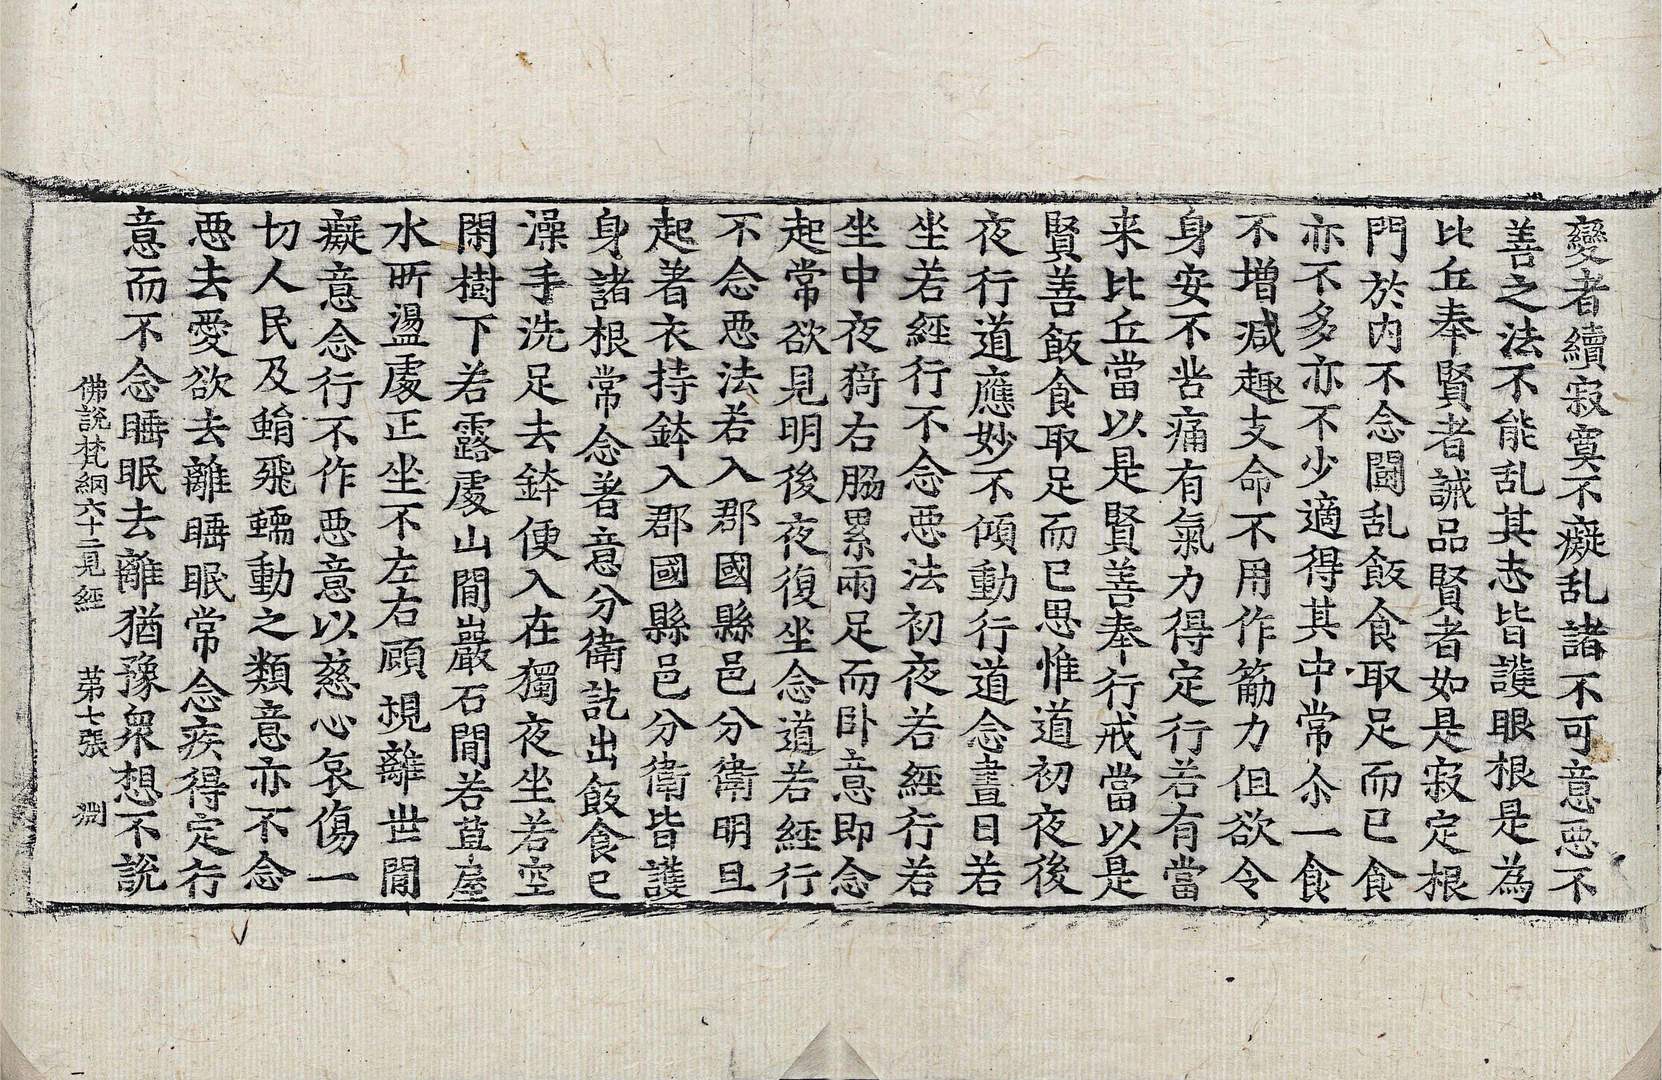 變者續寂寞不癡乱諸不可意惡不
善之法不能乱其志皆護眼根是為
比丘奉賢者誡品賢者如是寂定根
門於內不念鬪乱飯食取足而已食
亦不多亦不少適得其中常尒一食
不增减趣支命不用作筋力但欲令
身安不苦痛有氣力得定行若有當
来比丘當以是賢善奉行戒當以是
賢善飯食取足而已思惟道初夜後
夜行道應妙不傾動行道念晝日若
坐若經行不念惡法初夜若經行若
坐中夜猗右脇累兩足而卧意即念
起常欲見明後夜復坐念道若經行
不念惡法若入郡國縣邑分衛明旦
起著衣持鉢入郡國縣邑分衛皆護
身諸根常念著意分衛訖出飯食已
澡手洗足去鉢便入在獨夜坐若空
閑樹下若露處山間巖石間若草屋
水所盪處正坐不左右顧視離世間
癡意念行不作惡意以慈心哀傷一
切人民及蜎飛蠕動之類意亦不念
惡去愛欲去離睡眠常念疾得定行
意而不念睡眠去離猶豫衆想不說
佛說梵網六十二見經 第七張 淵